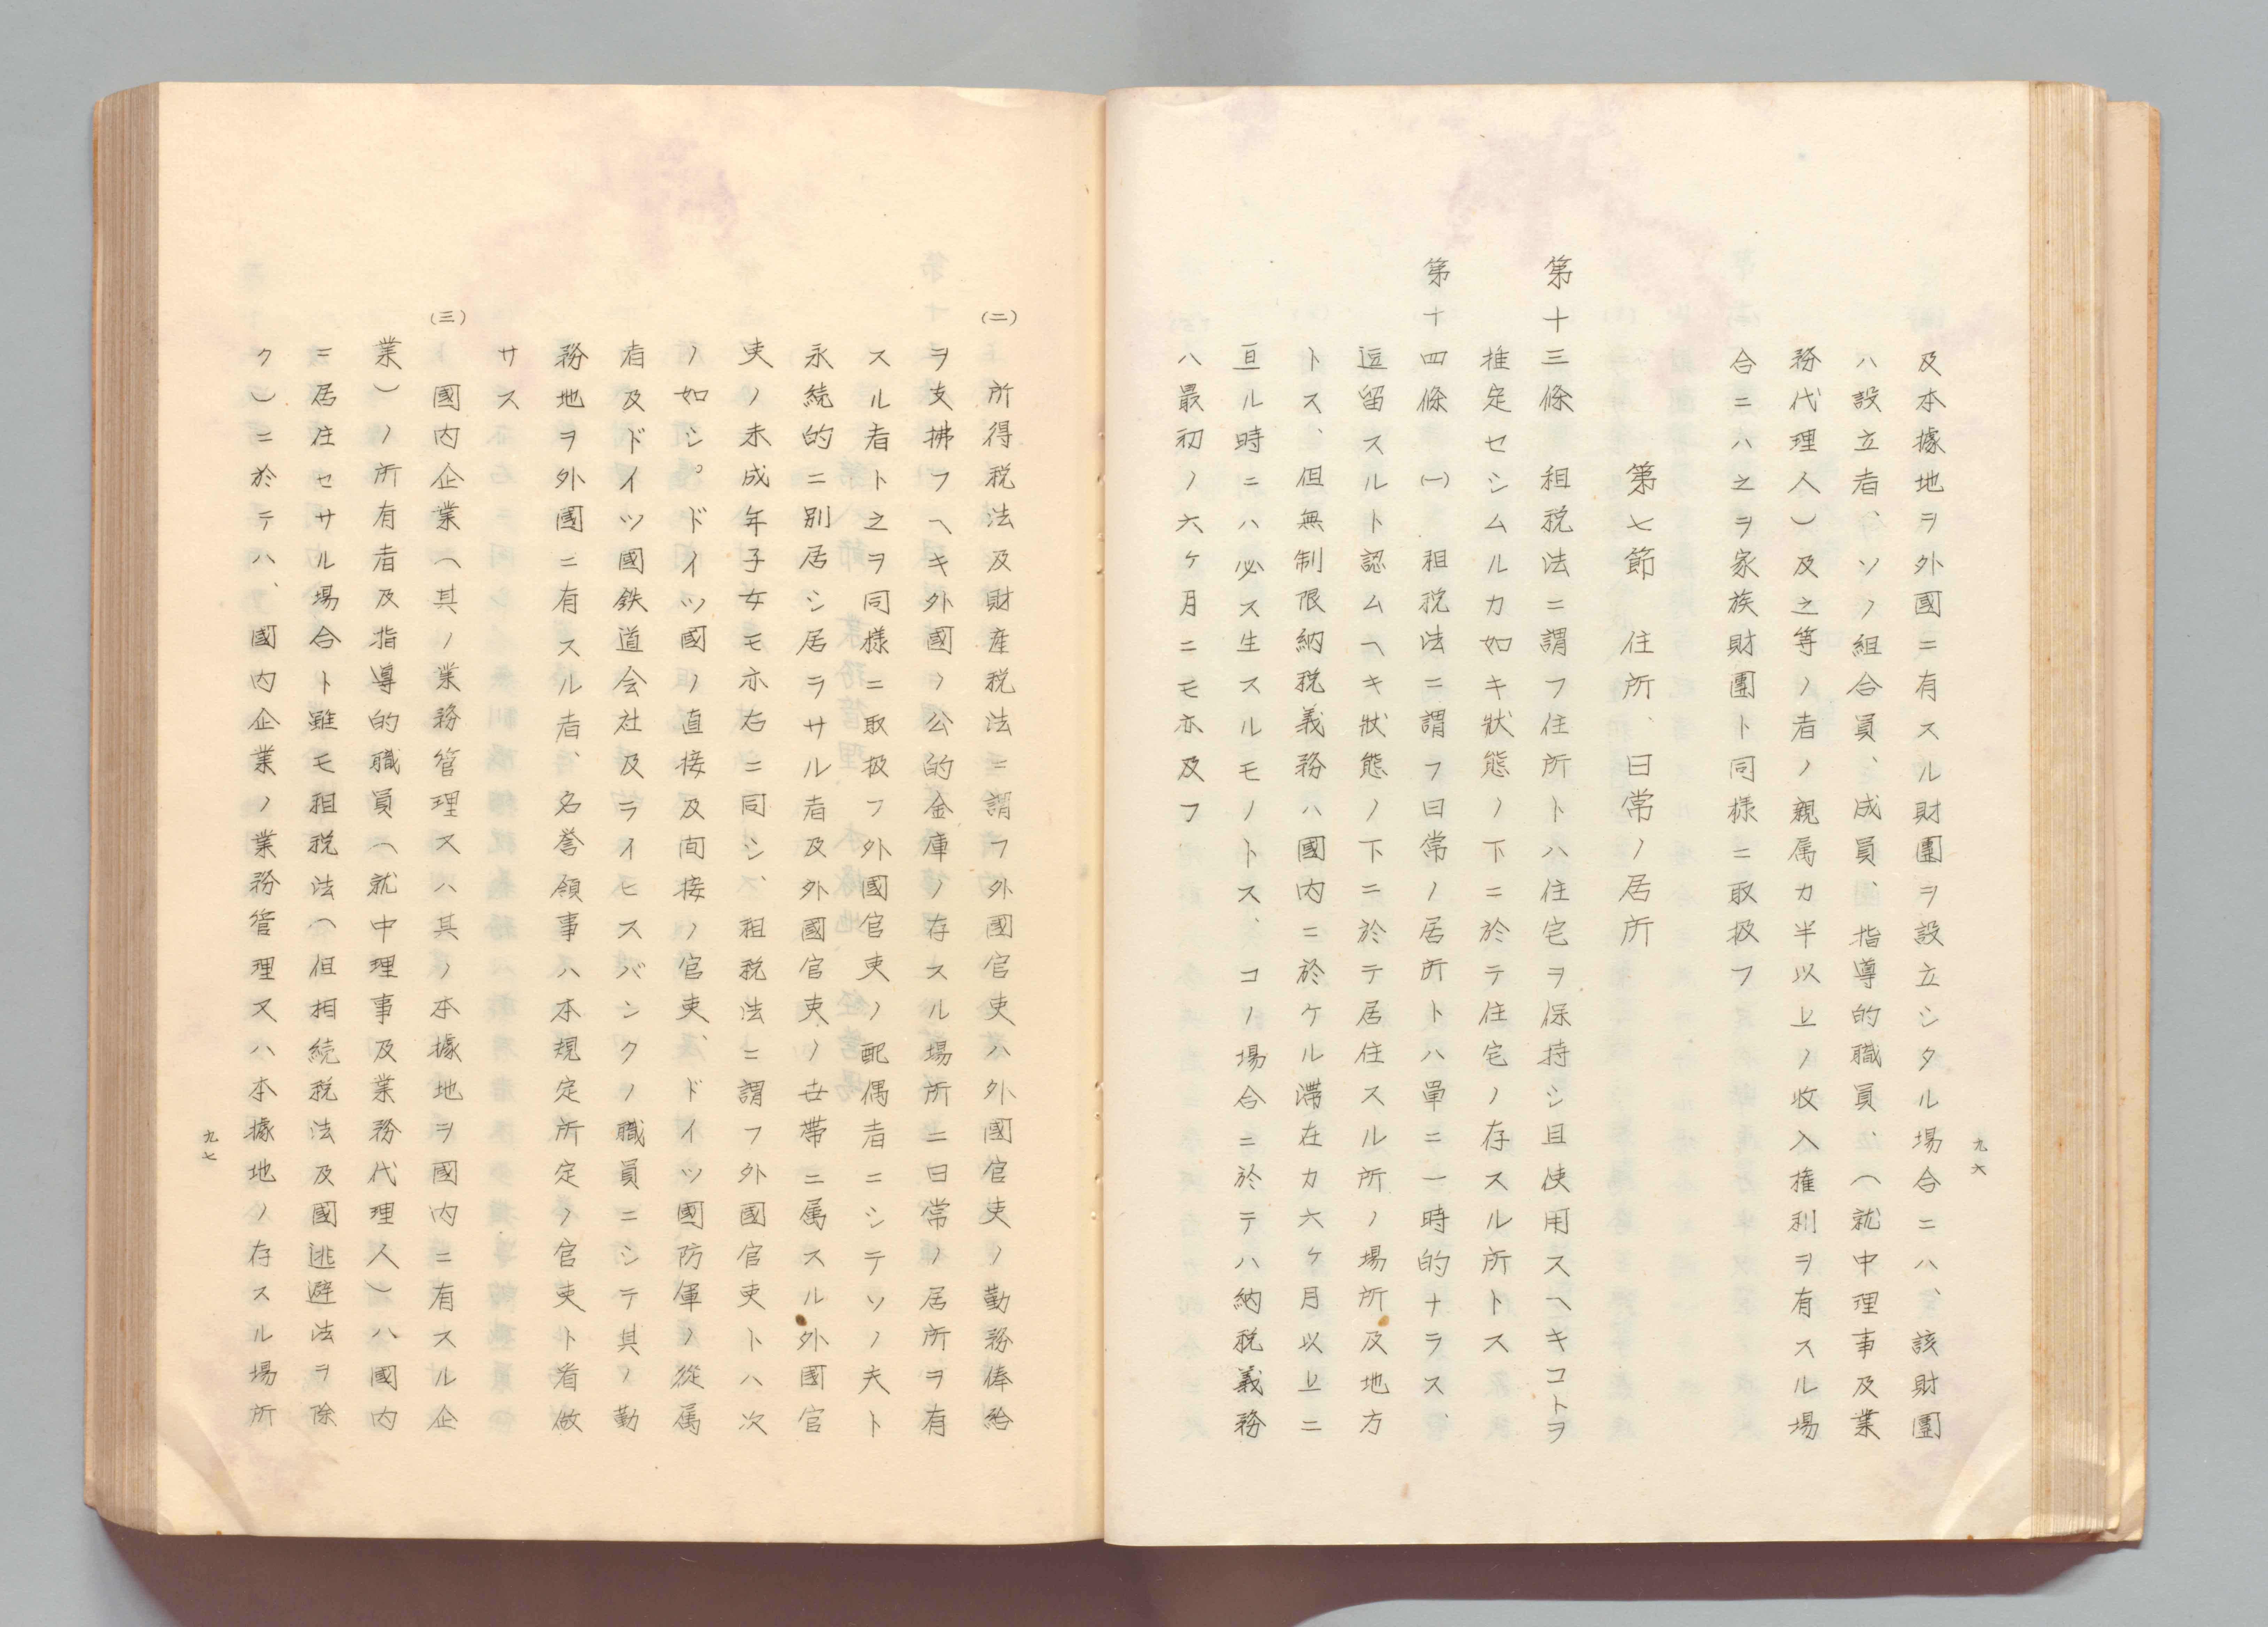 及本據地ヲ外國ニ有スル財團ヲ設立シタル場合ニハ、該財團
ハ設立者、ソノ組合員、成員、指導的職員、（就中理事及業
務代理人）及之等ノ者ノ親属カ半以上ノ收入權利ヲ有スル場
合ニハ之ヲ家族財團ト同様ニ取扱フ
第七節 住所、日常ノ居所
第十三條 租税法ニ謂フ住所トハ住宅ヲ保持シ且使用スヘキコトヲ
推定セシムルカ如キ狀態ノ下ニ於テ住宅ノ存スル所トス
第十四條 (一) 租税法ニ謂フ日常ノ居所トハ單ニ一時的ナラス、
逗留スルト認ムヘキ狀態ノ下ニ於テ居住スル所ノ場所及地方
トス、但無制限納税義務ハ國内ニ於ケル滞在カ六ヶ月以上ニ
亘ル時ニハ必ス生スルモノトス、コノ場合ニ於テハ納税義務
ハ最初ノ六ヶ月ニモ亦及フ
九六
(二) 所得税法及財産税法ニ謂フ外國官吏ハ外國官吏ノ勤務俸給
ヲ支拂フヘキ外國ノ公的金庫ノ存スル場所ニ日常ノ居所ヲ有
スル者ト之ヲ同様ニ取扱フ外國官吏ノ配偶者ニシテソノ夫ト
永続的ニ別居シ居ラサル者及外國官吏ノ世帶ニ属スル外國官
吏ノ未成年子女モ亦右ニ同シ、租税法ニ謂フ外國官吏トハ次
ノ如シ。ドイツ國ノ直接及間接ノ官吏、ドイツ國防軍ノ從属
者及ドイツ國鉄道会社及ライヒスバンクノ職員ニシテ其ノ勤
務地ヲ外國ニ有スル者、名誉領事ハ本規定所定ノ官吏ト看做
サス
(三) 國内企業（其ノ業務管理スハ其ノ本據地ヲ國内ニ有スル企
業）ノ所有者及指導的職員（就中理事及業務代理人）ハ國内
ニ居住セサル場合ト雖モ租税法（但相続税法及國逃避法ヲ除
ク）ニ於テハ、國内企業ノ業務管理又ハ本據地ノ存スル場所
九七